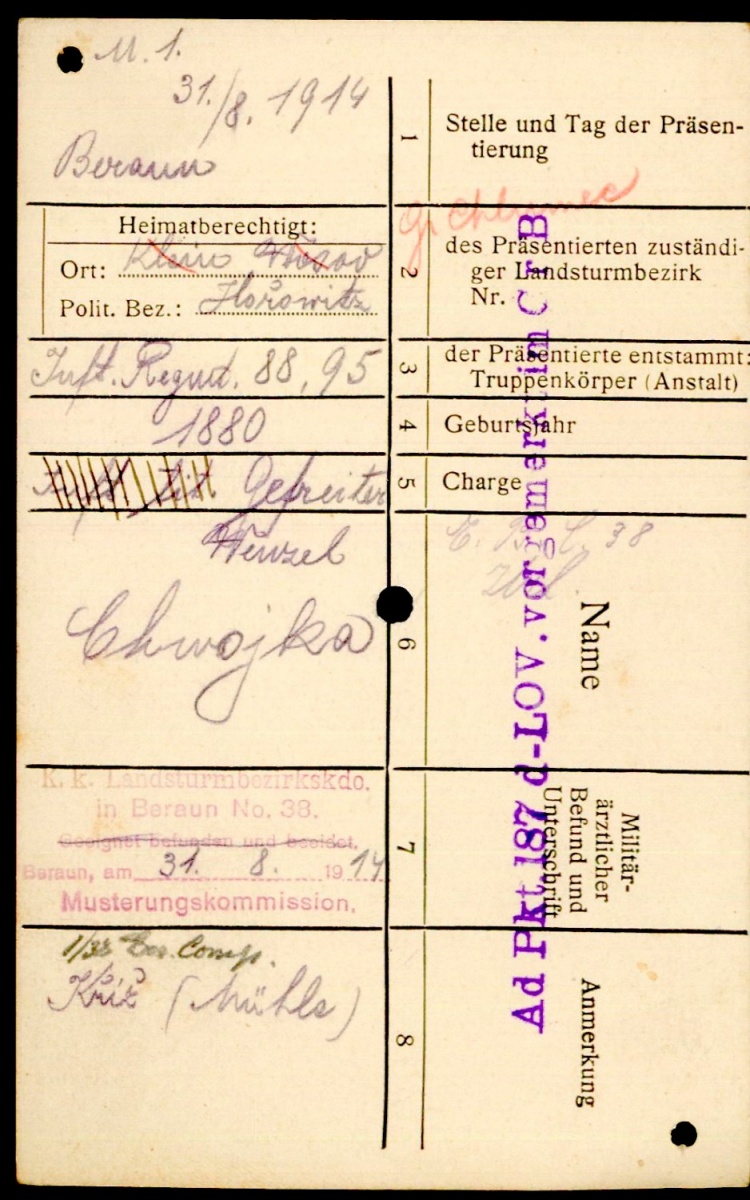 M. 1.
31./8. 1914
Beraun
1
Stelle und Tag der Präsen-
tierung
Heimatberechtigt:
Ort: Klein
Polit. Bez.: Horowitz
2
des Präsentierten zuständi-
ger Landsturmbezirk
Nr.
Inft. Regmt. 88, 95
3
der Präsentierte entstammt:
Truppenkörper (Anstalt)
1880
4
Geburtsjahr
Gefreiter
5
Charge
Wenzel
Chwojka
6
Name
38
K. k. Landsturmbezirkskdo.
in Beraun No. 38.
Geeignet befunden und beeidet.
Beraun, am 31. 8. 1914
Musterungskommission.
7
Militär-
ärztlicher
Befund und
Unterschrift
1/38 Comp.
Kříž (Mühls)
8
Anmerkung
Ad Pkt. 187 d-LOV. vorgemerkt im C r B